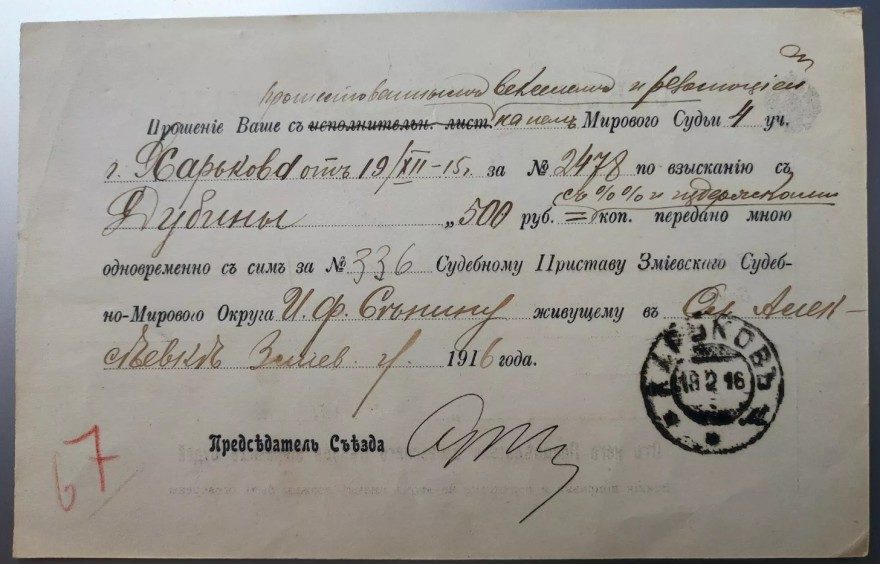 векселемъ и
Прошеніе Ваше съ исполнительн. лист. на немъ Мирового Судьи 4 уч.
г. Харькова отъ 19/XII-15 г. за № 2478 по взысканію съ
съ %% и издержками
Дубины „500 руб. = коп. передано мною
одновременно съ симъ за № 336 Судебному Приставу Зміевскаго Судеб-
но-Мирового Округа И. Ф. живущему въ Сл. Алек-
сѣевкѣ Зміев. у. 1916 года.
ХАРЬКОВЪ
18 2 16
Предсѣдатель Съѣзда
67